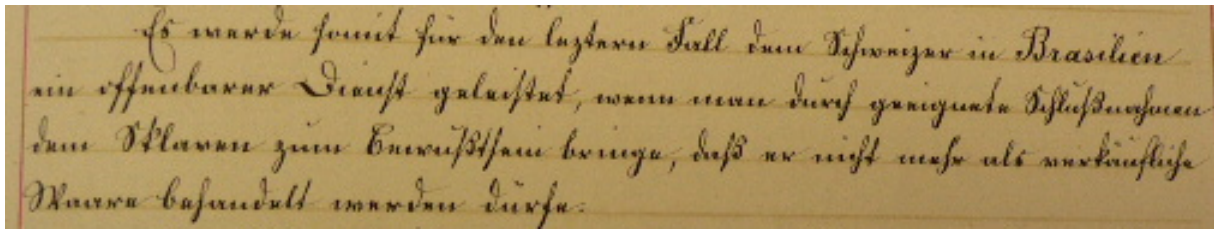 Es werde somit für den leztern Fall dem Schweizer in Brasilien
ein offenbarer Dienst geleistet, wenn man durch geeignete Schlußnahmen
dem Sklaven zum Bewußtsein bringe, daß er nicht mehr als verkäufliche
Waare behandelt werden dürfe.